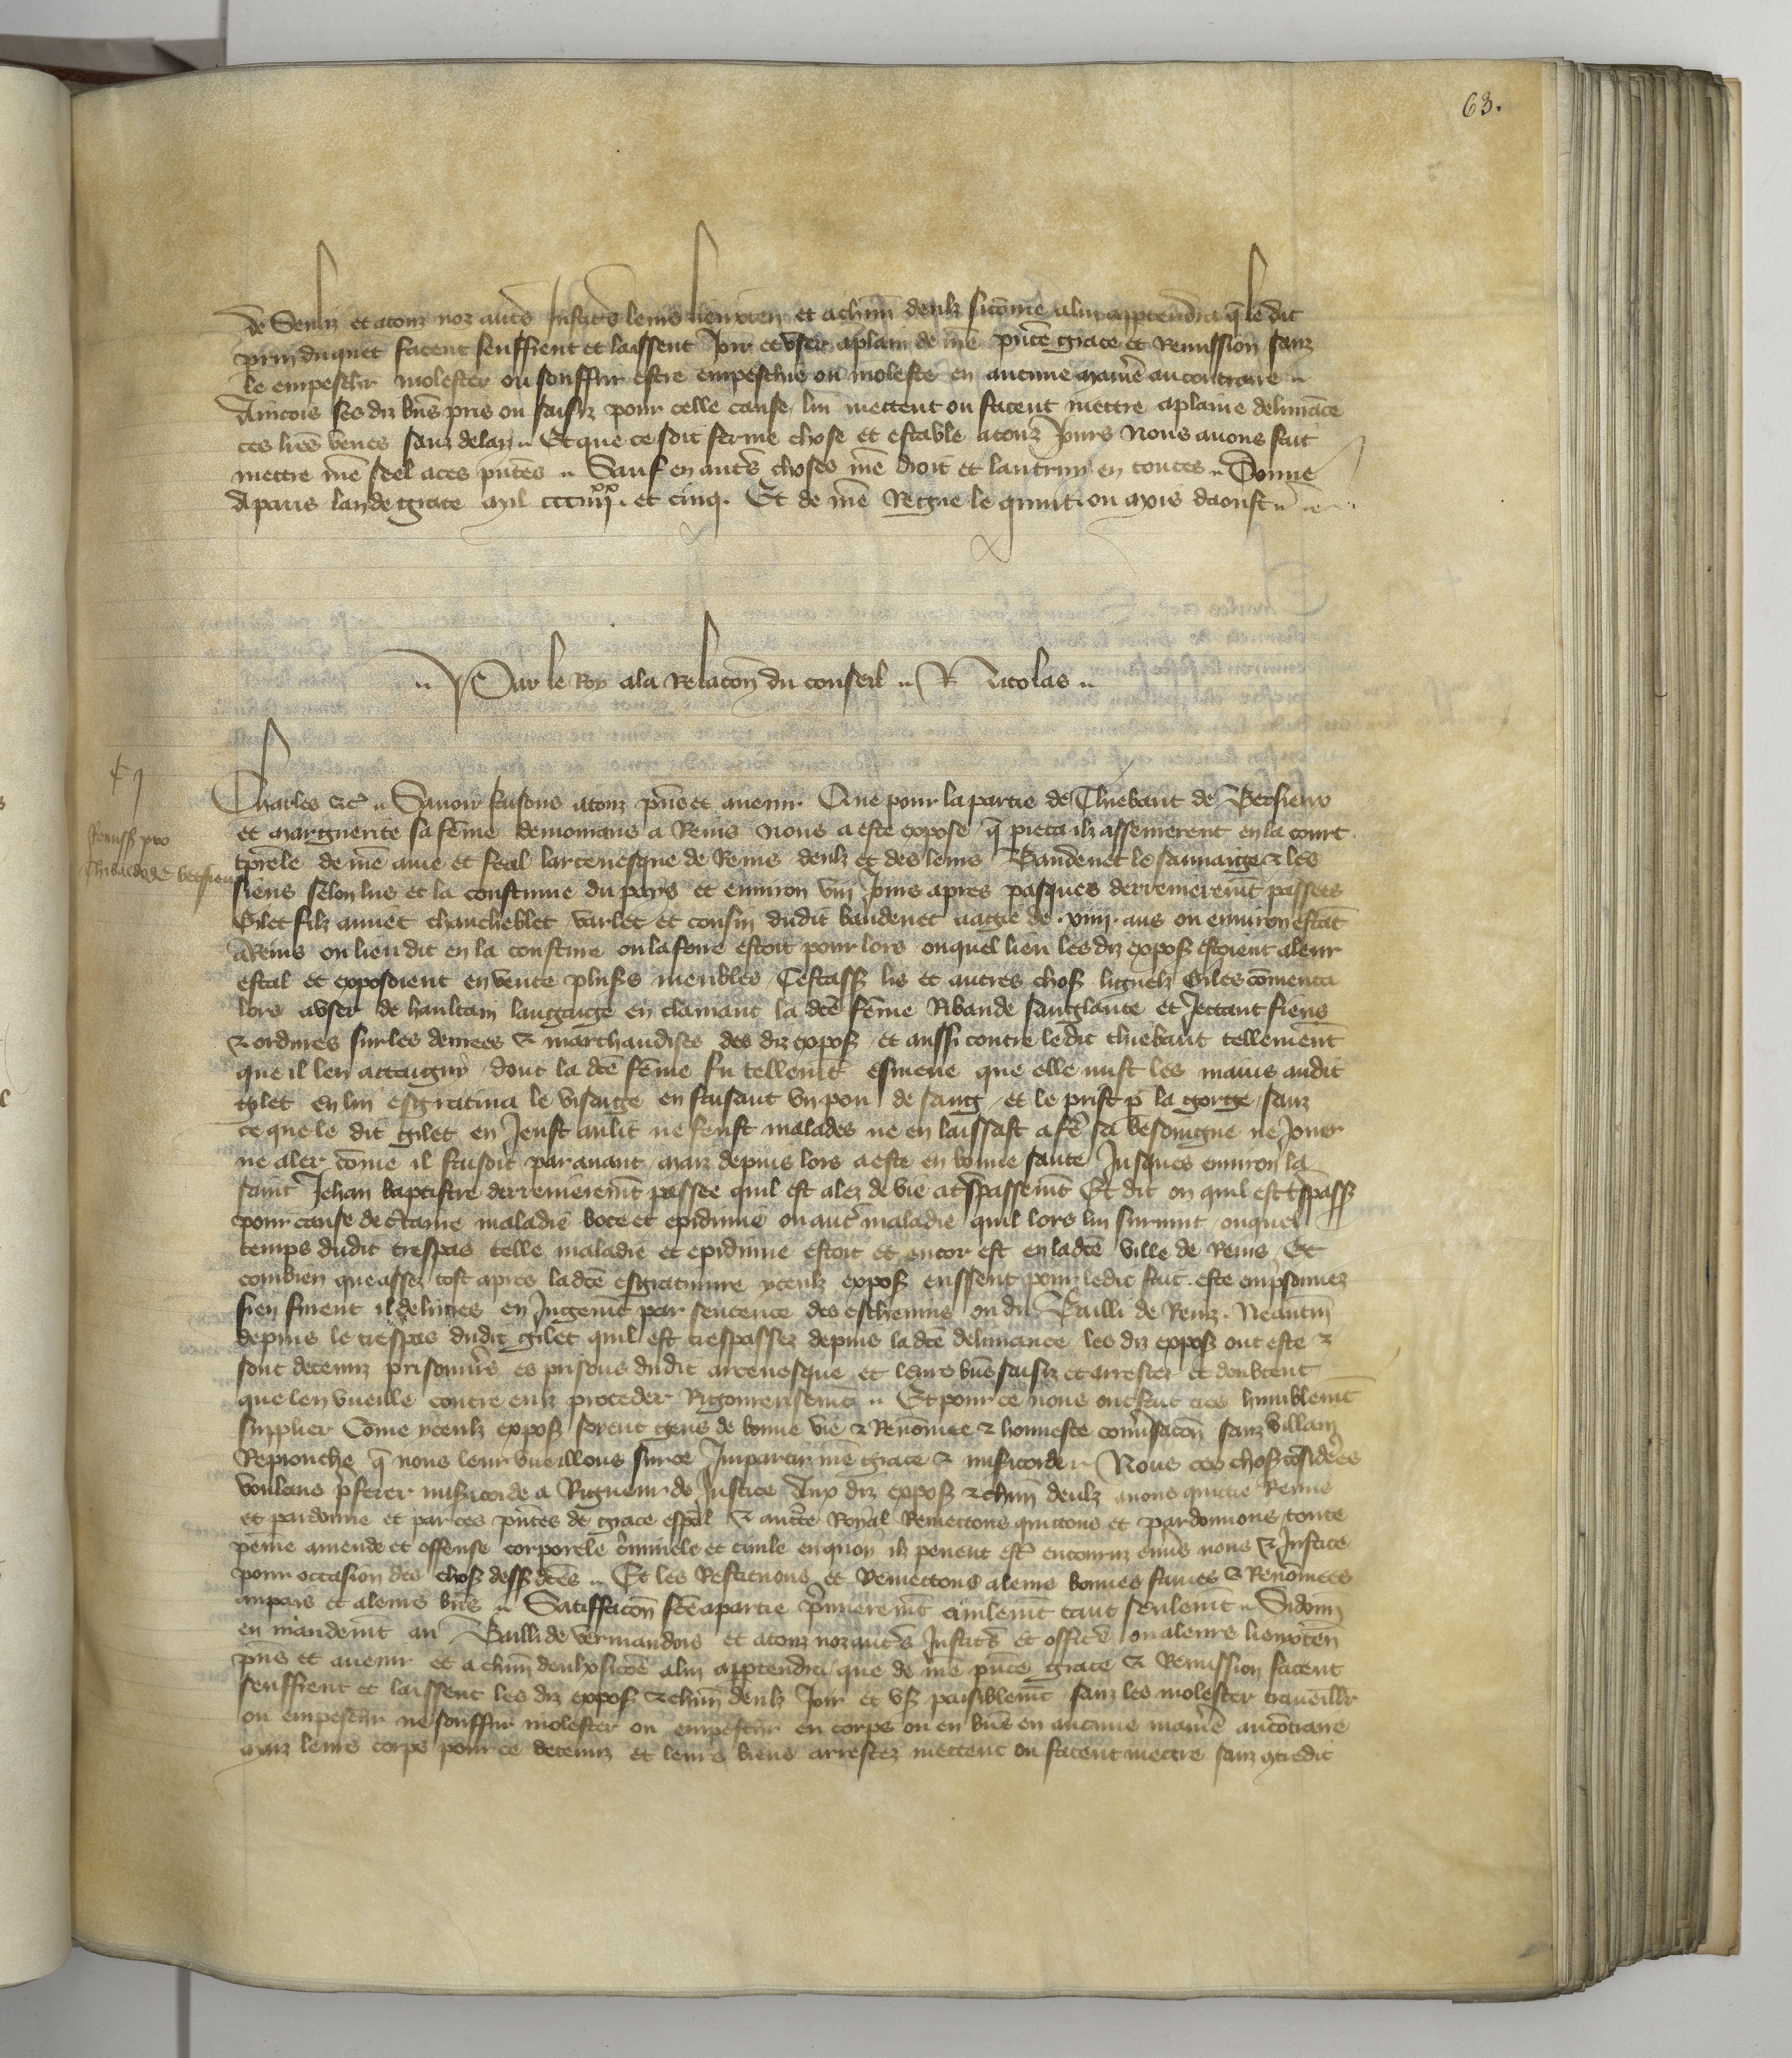 63.
de Senliz et a touz noz autres justiciers leurs lieuxten et a chun deulz sicome a lui appartendra q le dit
perrin duquet facent seuffrent et laissent joir et user a plain de nre pnte grace et Remission sanz
le empeschr molester ou souffrir estre empeschie ou moleste en aucune manie au contraire
Aincois ses diz biens pris ou saisiz pour celle cause lui mettent ou facent mettre a plaine delivrace
ces lres veues sanz delay Et que ce soit ferme chose et estable a touz jours Nous avons fait
mettre nre seel a ces pntes Sauf en autres choses nre droit et lautruy en toutes Donne
A paris lan de grace mil ccc iiii xx et cinq. Et de nre Regne le quint ou mois daoust
Par le Roy a la Relacon du conseil N Nicolas
Charles &c Savoir faisons a touz pns et avenir Que pour la partie de Thiebaut de Betfieux
Remiss pro
Thibaldo de betfieu
et marguerite sa feme demourans a Reins Nous a este expose q pieca ilz asseurerent en la court
tprele de nre ame et feal larcevesque de Reins deulz et des leurs Baudenet le sauvaige & les
siens selon lus et la coustume du pays et environ viii jours apres pasques derrenieremt passees
Gilet filz amiet chaucheblet varlet et cousin dudit baudenet aagie de xiiii ans ou environ estat
a Reins ou lieu dit en la cousture ou la foire estoit pour lors ouquel lieu les diz expos estoient a leur
estal et exposoient en vente plus meubles Cestass lis et autres chos liquelz Giles comenca
lors a user de haultain langaige en clamant la dce feme Ribaude sanglante et jectant fiens
& ordures sur les denrees & marchandises des diz expos et aussi contre ledit thiebaut tellement
que il len attaigny dont la dce feme fu tellemt esmeue que elle mist les mains audit
gilet en lui esgratina le visaige en faisant un pou de sang et le prist p la gorge sanz
ce que le dit gilet en jeust au lit ne feust malades ne en laissast a fe sa besoingne ne jouer
ne aler come il faisoit par avant mais depuis lors a este en bonne sante jusques environ la
saint Jehan baptistre derrenieremt passee quil est alez de vie a trespassemt Et dit on quil est trespass
pour cause de certaine maladie boce et epidimie ou autre maladie quil lors lui survint ouquel
temps dudit trespas telle maladie et epidimie estoit et encor est en la dce ville de Reins Et
combien que assez tost apres la dce esgratinure yceulz expos eussent pour ledit fait este emprisonnez
sien furent il delivres en jugemt par sentence des eschevins ou du Bailli de Reins. Neantm
depuis le trespas dudit gilet quil est trespassez depuis la dce delivrance les diz expos ont este &
sont detenuz prisonniers es prisons dudit arcevesque et leurs biens saisiz et arrestez et doubtent
que len vueille contre eulz proceder Rigoreusemt Et pour ce nous ont fait tres humblemt
supplier Come yceulz expos soyent gens de bonne vie & Renomee & honneste conversacon sanz villain
Reprouche q nous leur vueillons sur ce Impartir nre grace & misericorde Nous ces chos cosiderees
voulans preferer misericorde a Rigueur de Justice Aux diz expos & chun deulz avons quictie Remis
et pardonne et par ces pntes de grace espal & auctorite Royal Remettons quictons et pardonnons toute
peine amende et offense corporele criminele et civile en quoy ilz pevent estre encouruz envers nous & Justice
pour occasion des chos dess dces Et les Restituons et Remettons a leurs bonnes fames & Renomees
au pais et a leurs biens Satiffacon fce a partie premieremt civilemt tant seulemt Si donn
en mandemt au Bailli de Vermandois et a touz noz autres Justiciers et officiers ou a leurs lieuxten
pns et avenir et a chun deulx sicoe a lui appartendra que de nre pnte grace & Remission facent
seuffrent et laissent les diz expos & chun deulz Joir et user paisiblemt sanz les molester traveillr
ou empeschr ne souffrir molester ou empeschr en corps ou en biens en aucune manie au cotraire
mais leurs corps pour ce detenuz et leurs biens arrestez mettent ou facent mettre sanz contredit